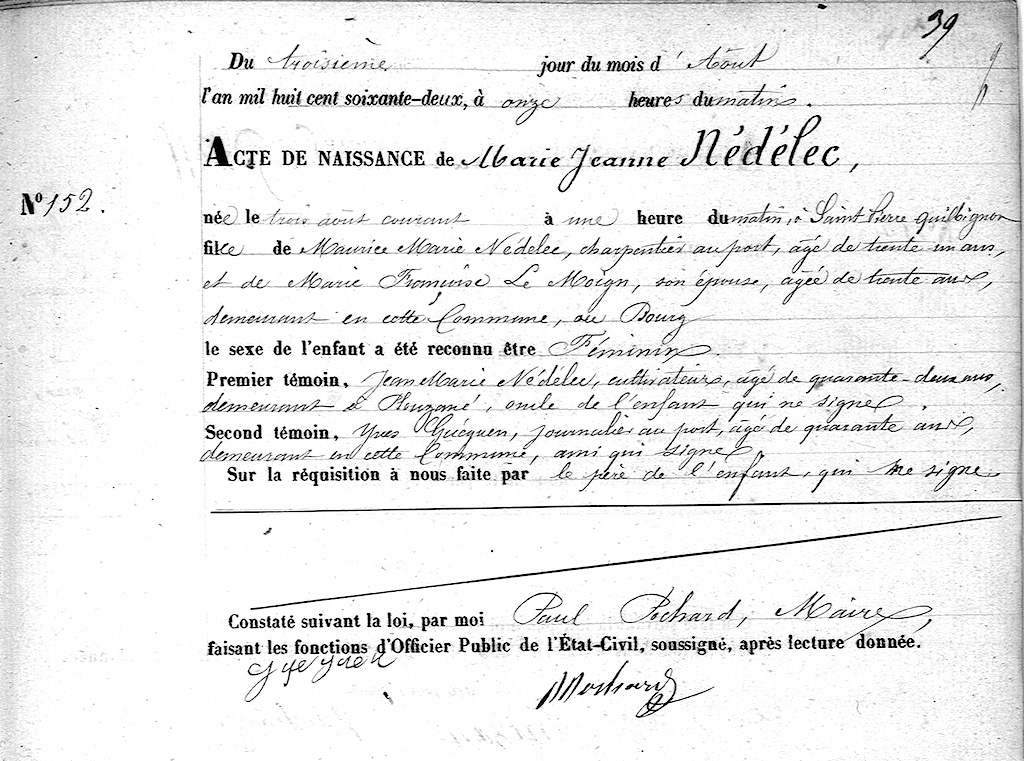 39
Du troisième jour du mois d' Août
l'an mil huit cent soixante-deux, à onze heures du matin.
ACTE DE NAISSANCE de Marie Jeanne Nédélec,
N° 152.
née le trois août courant à une heure du matin, à Saint Pierre quilbignon
fille de Maurice Marie Nédélec, charpentier au port, âgé de trente un ans,
et de Marie Françoise Le Moign, son épouse, âgée de trente ans,
demeurant en cette Commune, au Bourg
le sexe de l'enfant a été reconnu être Féminin.
Premier témoin, Jean Marie Nédélec, cultivateur, âgé de quarante-deux ans,
demeurant à Plouzané, oncle de l'enfant qui ne signe.
Second témoin, Yves Guéguen, journalier au port, âgé de quarante ans,
demeurant en cette Commune, ami qui signe.
Sur la réquisition à nous faite par le père de l'enfant, qui ne signe
Constaté suivant la loi, par moi Paul Pochard, Maire,
faisant les fonctions d'Officier Public de l'État-Civil, soussigné, après lecture donnée.